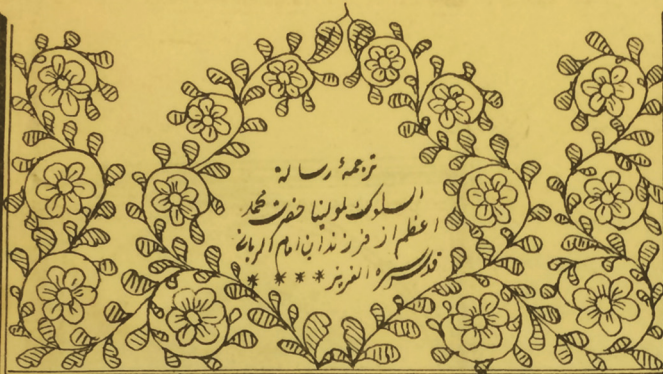 ترجمهٔ رسالهٔ
السلوك لمولینا حضرت محمد
اعظم از فرزندان امام الربانی
قدس سره العزیز * * * *